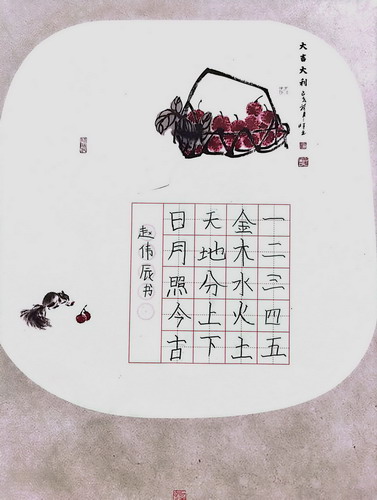 大吉大利
一二三四五
金木水火土
天地分上下
日月照今古
赵伟辰书